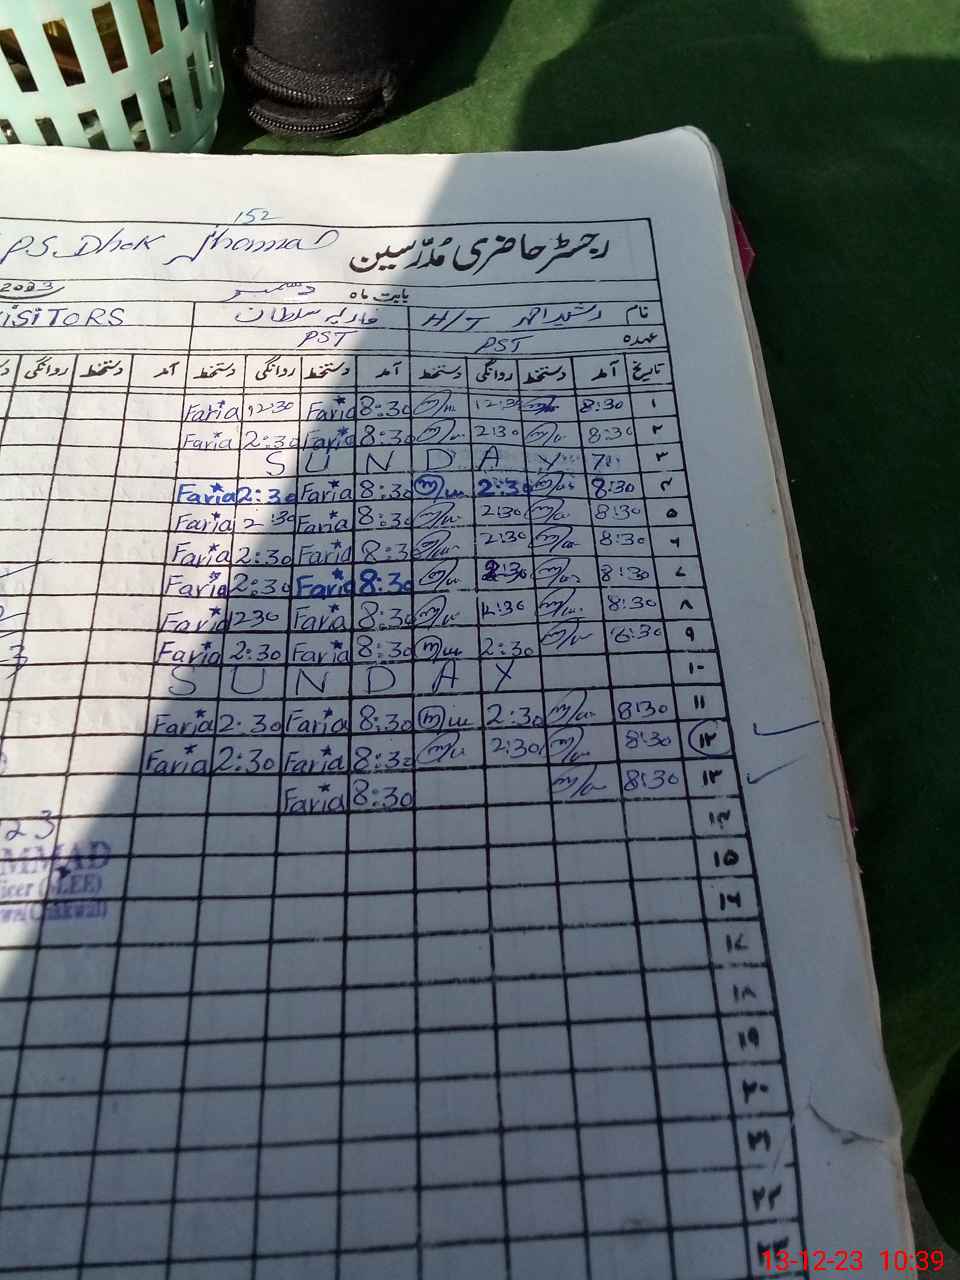 152
P.S. Dhok Jhamal رجسٹر حاضری مُدرّسین
2023 بابت ماہ دسمبر
نام رشید احمد H/T فاریہ سلطان VISITORS
عہدہ PST PST
تاریخ آمد دستخط روانگی دستخط آمد دستخط روانگی دستخط آمد دستخط روانگی
۱ 8:30 12:30 8:30 Faria 12:30 Faria
۲ 8:30 2:30 8:30 Faria 2:30 Faria
۳ SUNDAY
۴ 8:30 2:30 8:30 Faria 2:30 Faria
۵ 8:30 2:30 8:30 Faria 2:30 Faria
۶ 8:30 2:30 8:30 Faria 2:30 Faria
۷ 8:30 2:30 8:30 Faria 2:30 Faria
۸ 8:30 12:30 8:30 Faria 1230 Faria
۹ 8:30 2:30 8:30 Faria 2:30 Faria
۱۰ SUNDAY
۱۱ 8:30 2:30 8:30 Faria 2:30 Faria
۱۲ 8:30 2:30 8:30 Faria 2:30 Faria
۱۳ 8:30 8:30 Faria
۱۴
23
MMAD
۱۵
ficer (LEE)
۱۶
۱۷
۱۸
۱۹
۲۰
۲۱
۲۲
۲۳
13-12-23 10:39